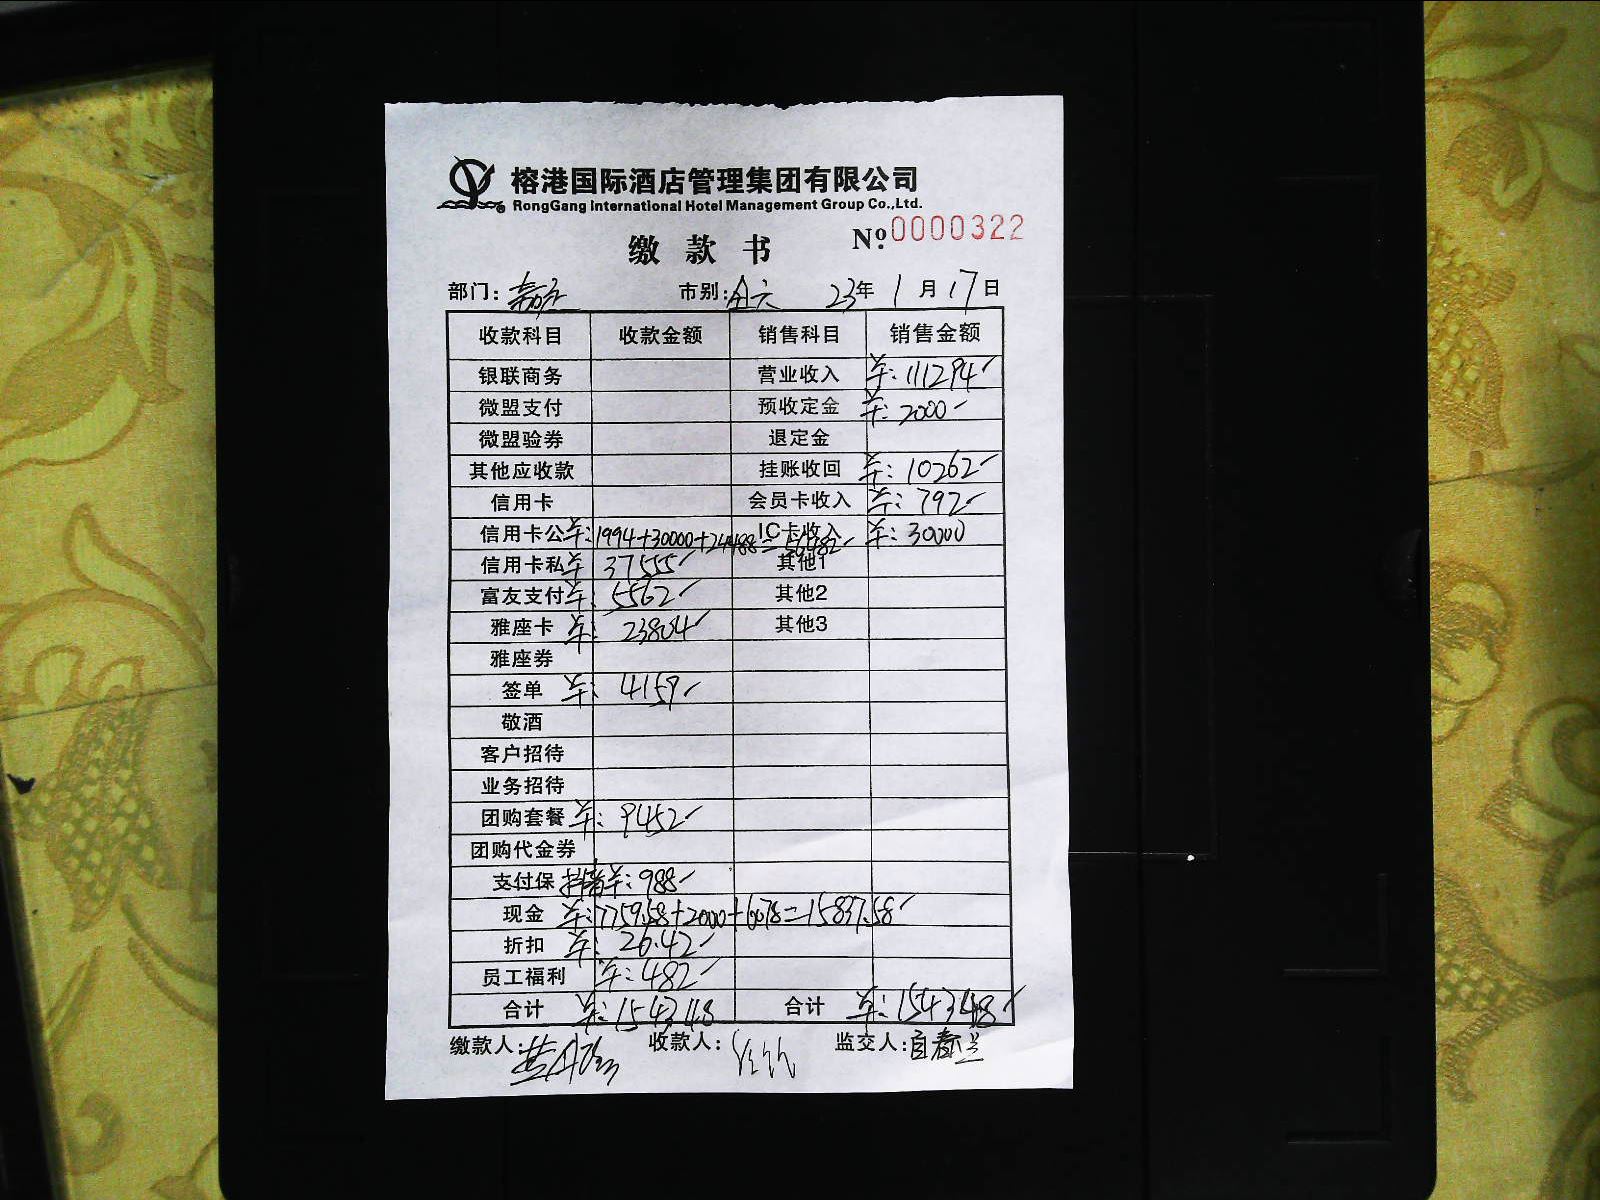 榕港国际酒店管理集团有限公司
RongGang International Hotel Management Group Co.,Ltd.
缴款书 Nº 0000322
部门: 市别: 23年 1月 17日
收款科目 收款金额 销售科目 销售金额
银联商务 营业收入 卡: 111294
微盟支付 预收定金 卡: 2000
微盟验券 退定金
其他应收款 挂账收回 卡: 10262
信用卡 会员卡收入 卡: 792
信用卡公 卡: 1994+30000+24488=56482 IC卡收入 卡: 30000
信用卡私 卡 37555 其他1
富友支付 卡: 5562 其他2
雅座卡 卡: 23804 其他3
雅座券
签单 卡: 4159
敬酒
客户招待
业务招待
团购套餐 卡: 9452
团购代金券
支付保 卡: 988
现金 卡: 7759.58+2000+6078=15837.58
折扣 卡: 26.42
员工福利 卡: 482
合计 卡: 154348 合计 卡: 154348
缴款人: 收款人: 监交人: